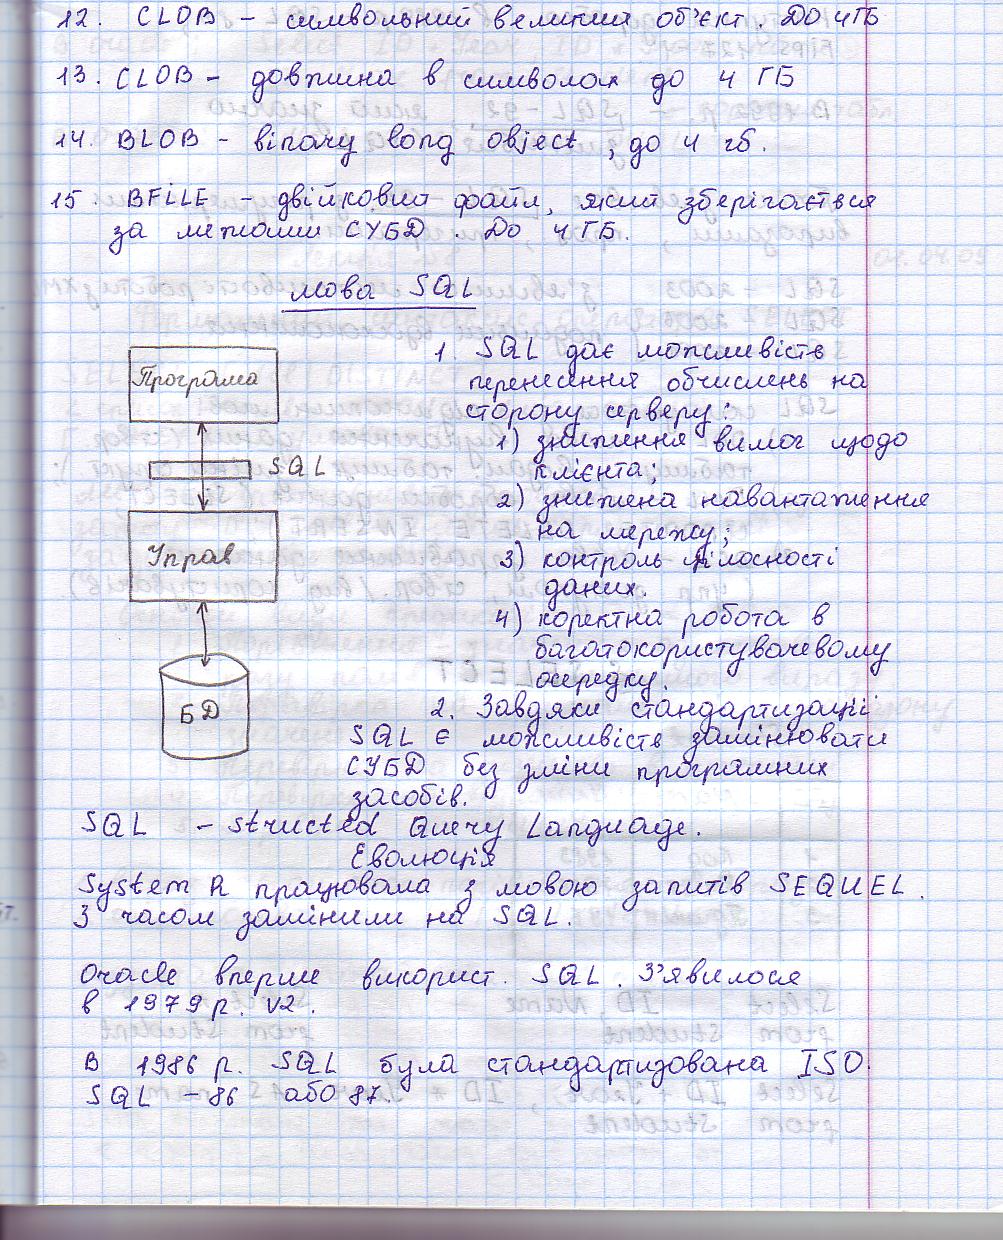 12. CLOB – символьний великий об'єкт. До 4ГБ
13. CLOB – довжина в символах до 4 ГБ
14. BLOB – binary long object, до 4 гб.
15 BFILE – двійковий файл, який зберігається
за межами СУБД. До 4ГБ.
мова SQL
Програма
SQL
Управ
БД
1. SQL дає можливість
перенесення обчислень на
сторону серверу:
1) зниження вимог щодо
клієнта;
2) знижена навантаження
на мережу;
3) контроль цілосності
даних.
4) коректна робота в
багатокористувачевому
осередку.
2. Завдяки стандартизації
SQL є можливість замінювати
СУБД без зміни програмних
засобів.
SQL – Structed Query Language.
Еволюція
System R працювала з мовою запитів SEQUEL.
З часом замінили на SQL.
Oracle вперше використ. SQL. З'явилося
в 1979 р. V2.
В 1986 р. SQL була стандартизована ISO.
SQL – 86 або 87.